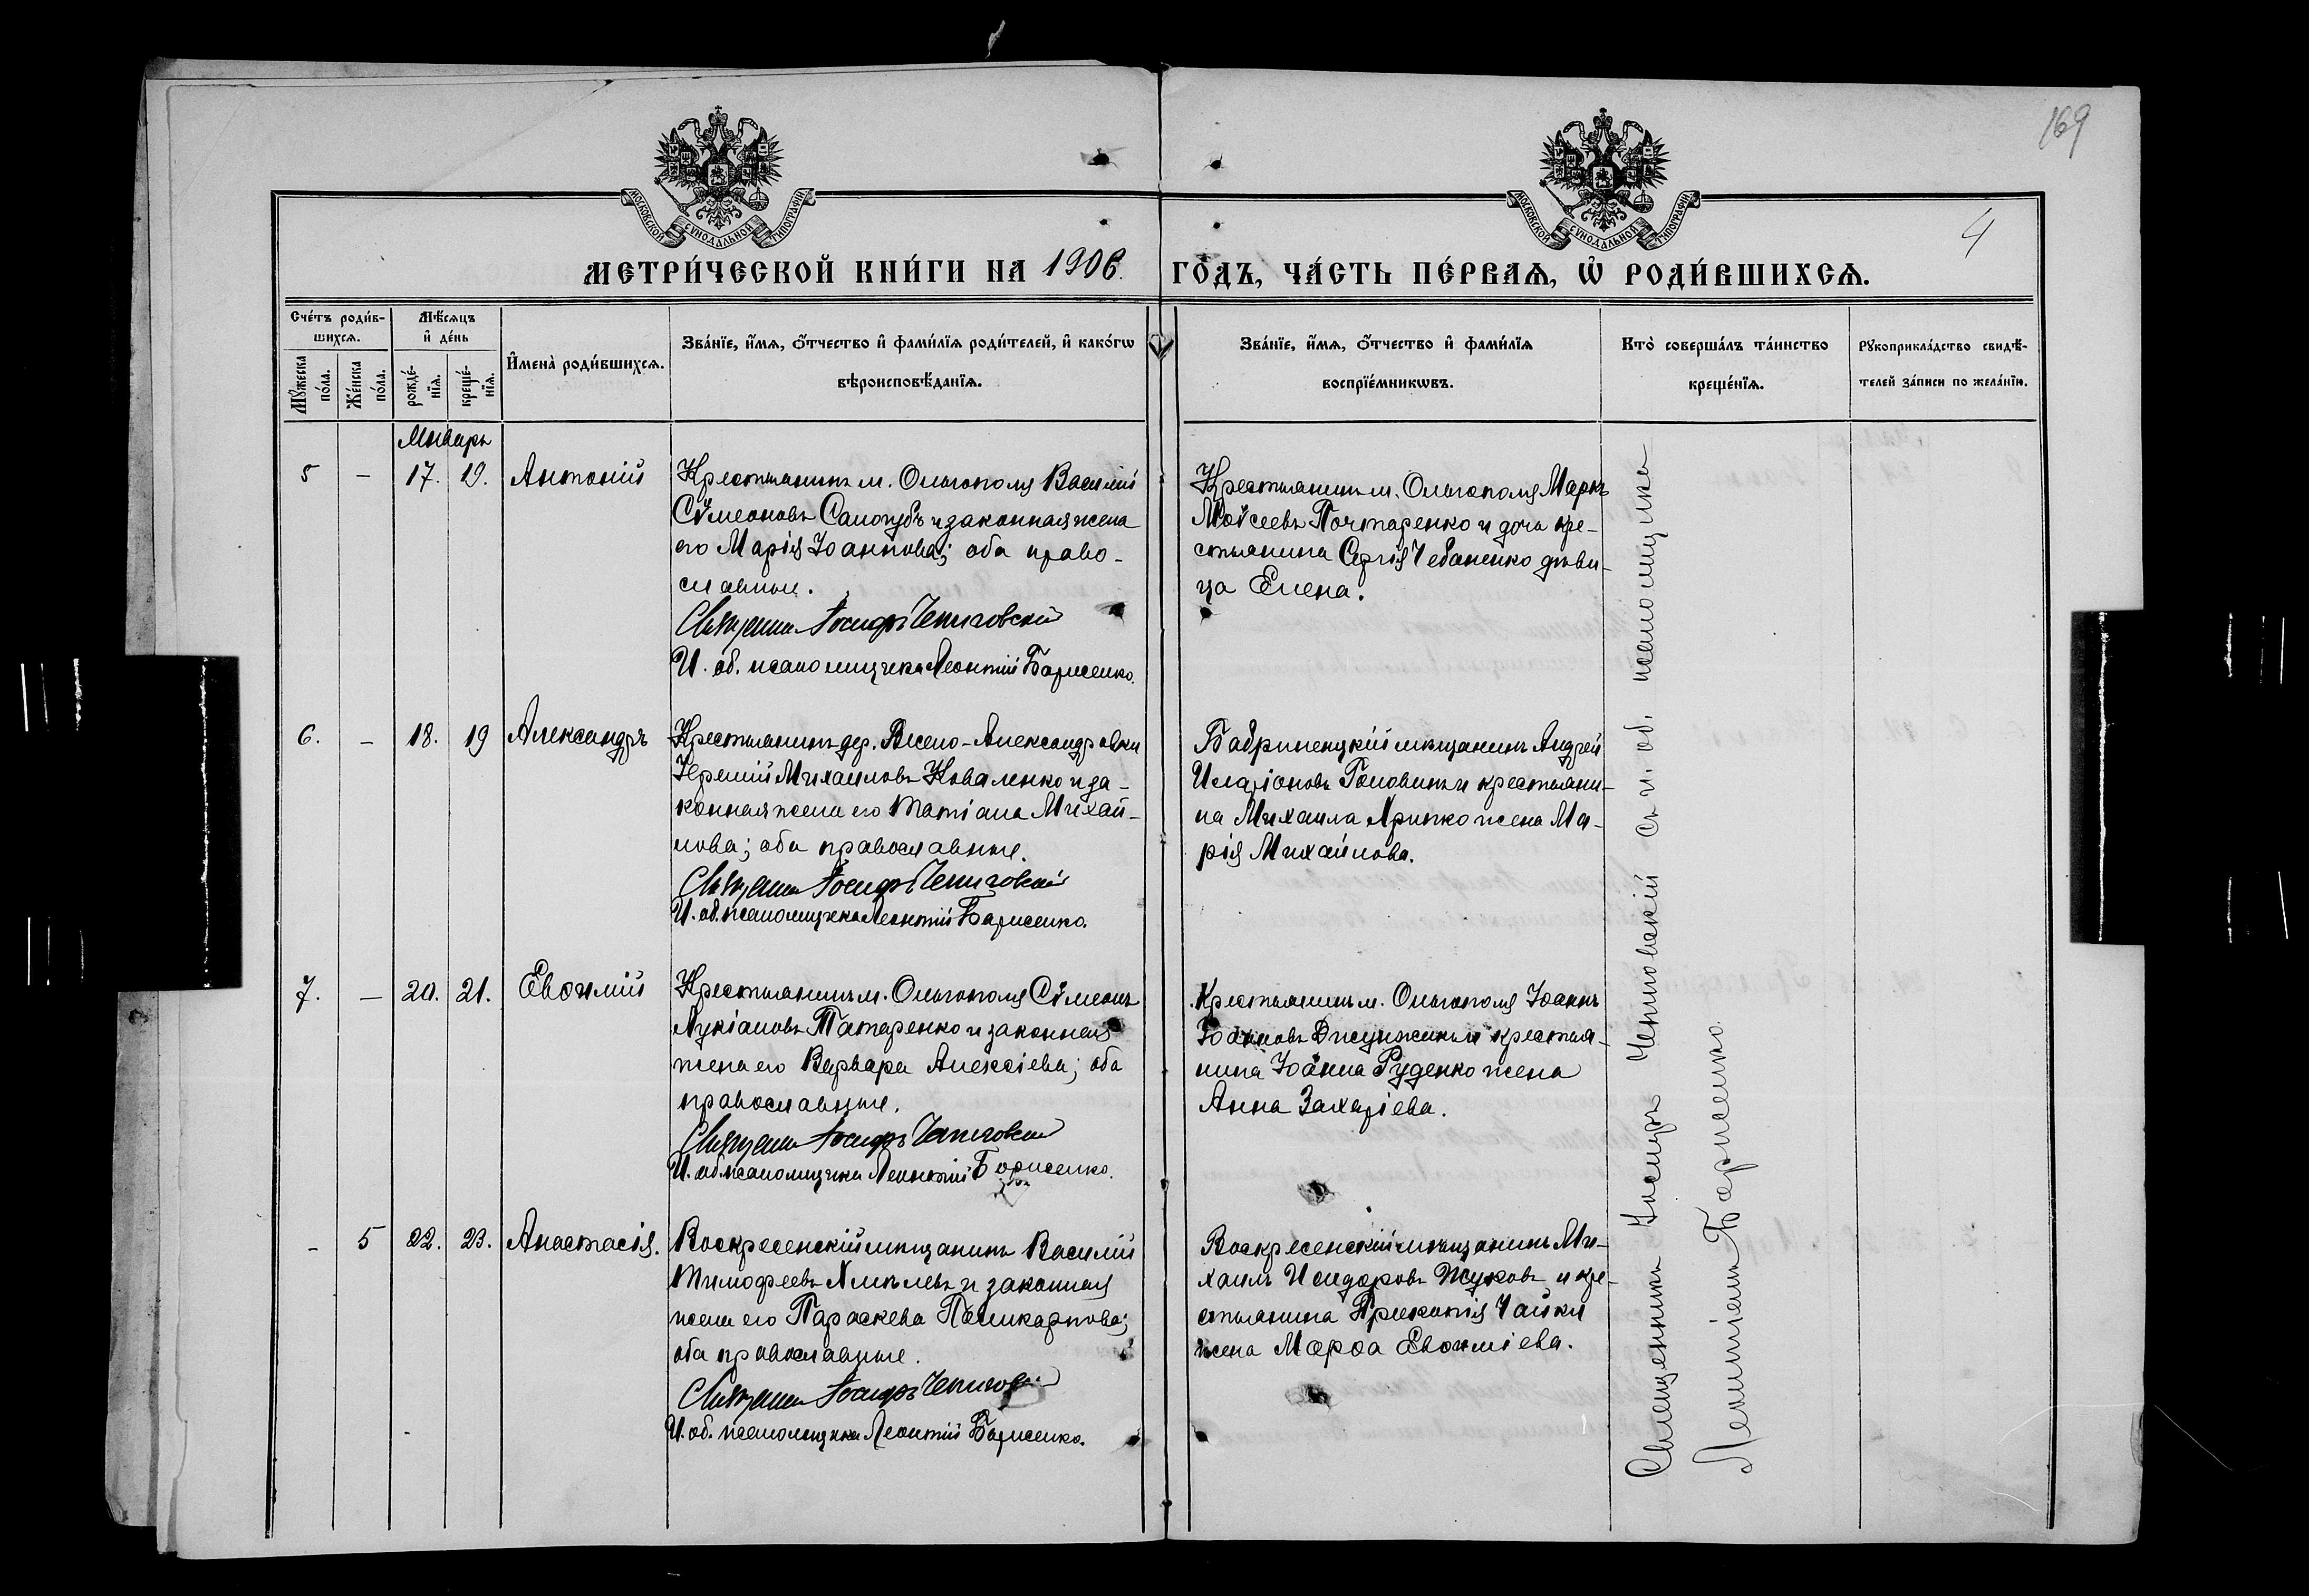 169
4
МОСКОВСКОЙ СѴНОДАЛЬНОЙ ТИПОГРАФІИ
МОСКОВСКОЙ СѴНОДАЛЬНОЙ ТИПОГРАФІИ
МЕТРИ́ЧЕСКОЙ КНИ́ГИ НА 1906. ГО́ДЪ, ЧА́СТЬ ПЕ́РВАѦ, Ѡ҆ РОДИ́ВШИХСѦ.
Сче́тъ роди́в-
шихсѧ.
Мꙋ́жеска по́ла.
Же́нска по́ла.
Мѣ́сѧцъ
и҆ де́нь
рожде́-
нїѧ.
креще́-
нїѧ.
И҆мена̀ роди́вшихсѧ.
Зва́нїе, и҆́мѧ, ѻ҆́тчество и҆ фами́лїѧ роди́телей, и҆ како́гѡ
вѣроисповѣ́данїѧ.
Зва́нїе, и҆́мѧ, ѻ҆́тчество и҆ фами́лїѧ
воспрїе́мникѡвъ.
Кто̀ соверша́лъ та́инство
креще́нїѧ.
Рꙋкоприкла́дство свидѣ́-
телей за́писи по жела́нїю.
Январь
5 – 17. 19. Антоній
Крестьянинъ м. Ольгополя Василій
Сѵмеоновъ Самогубъ и законная жена
его Марія Іоаннова; оба право-
славные.
Священникъ Іосифъ Чепиговскій
И. об. псаломщика Леонтій Борисенко.
Крестьянинъ м. Ольгополя Маркъ
Моѵсеевъ Почтаренко и дочь кре-
стьянина Сергія Чебаненко дѣви-
ца Елена.
6. – 18. 19 Александръ
Крестьянинъ дер. Весело-Александровки
Іеремій Михаиловъ Коваленко и за-
конная жена его Татіана Михай-
лова; оба православные.
Священникъ Іосифъ Чепиговскій
И. об. псаломщика Леонтій Борисенко.
Бобринецкій мѣщанинъ Андрей
Иларіоновъ Головинъ и крестьяни-
на Михаила Хринко жена Ма-
рія Михайлова.
7. – 20. 21. Евѳимій
Крестьянинъ м. Ольгополя Сѵмеонъ
Лукіановъ Татаренко и законная
жена его Варвара Алексіева; оба
православные.
Священникъ Іосифъ Чепиговскій
И. об. псаломщика Леонтій Борисенко.
Крестьянинъ м. Ольгополя Іоаннъ
Іоанновъ и крестья-
нина Іоанна Руденко жена
Анна Захаріева.
– 5 22. 23. Анастасія.
Воскресенскій мѣщанинъ Василій
Тимофеевъ Хмѣлевъ и законная
жена его Параскева Поликарпова;
оба православные.
Священникъ Іосифъ Чепиговскій
И. об. псаломщика Леонтій Борисенко.
Воскресенскій мѣщанинъ Ми-
хаилъ Исидоровъ Жуковъ и кре-
стьянина Прокопія Чайки
жена Марѳа Евѳиміева.
Священникъ Іосифъ Чепиговскій съ и. об. псаломщика
Леонтіемъ Борисенко.